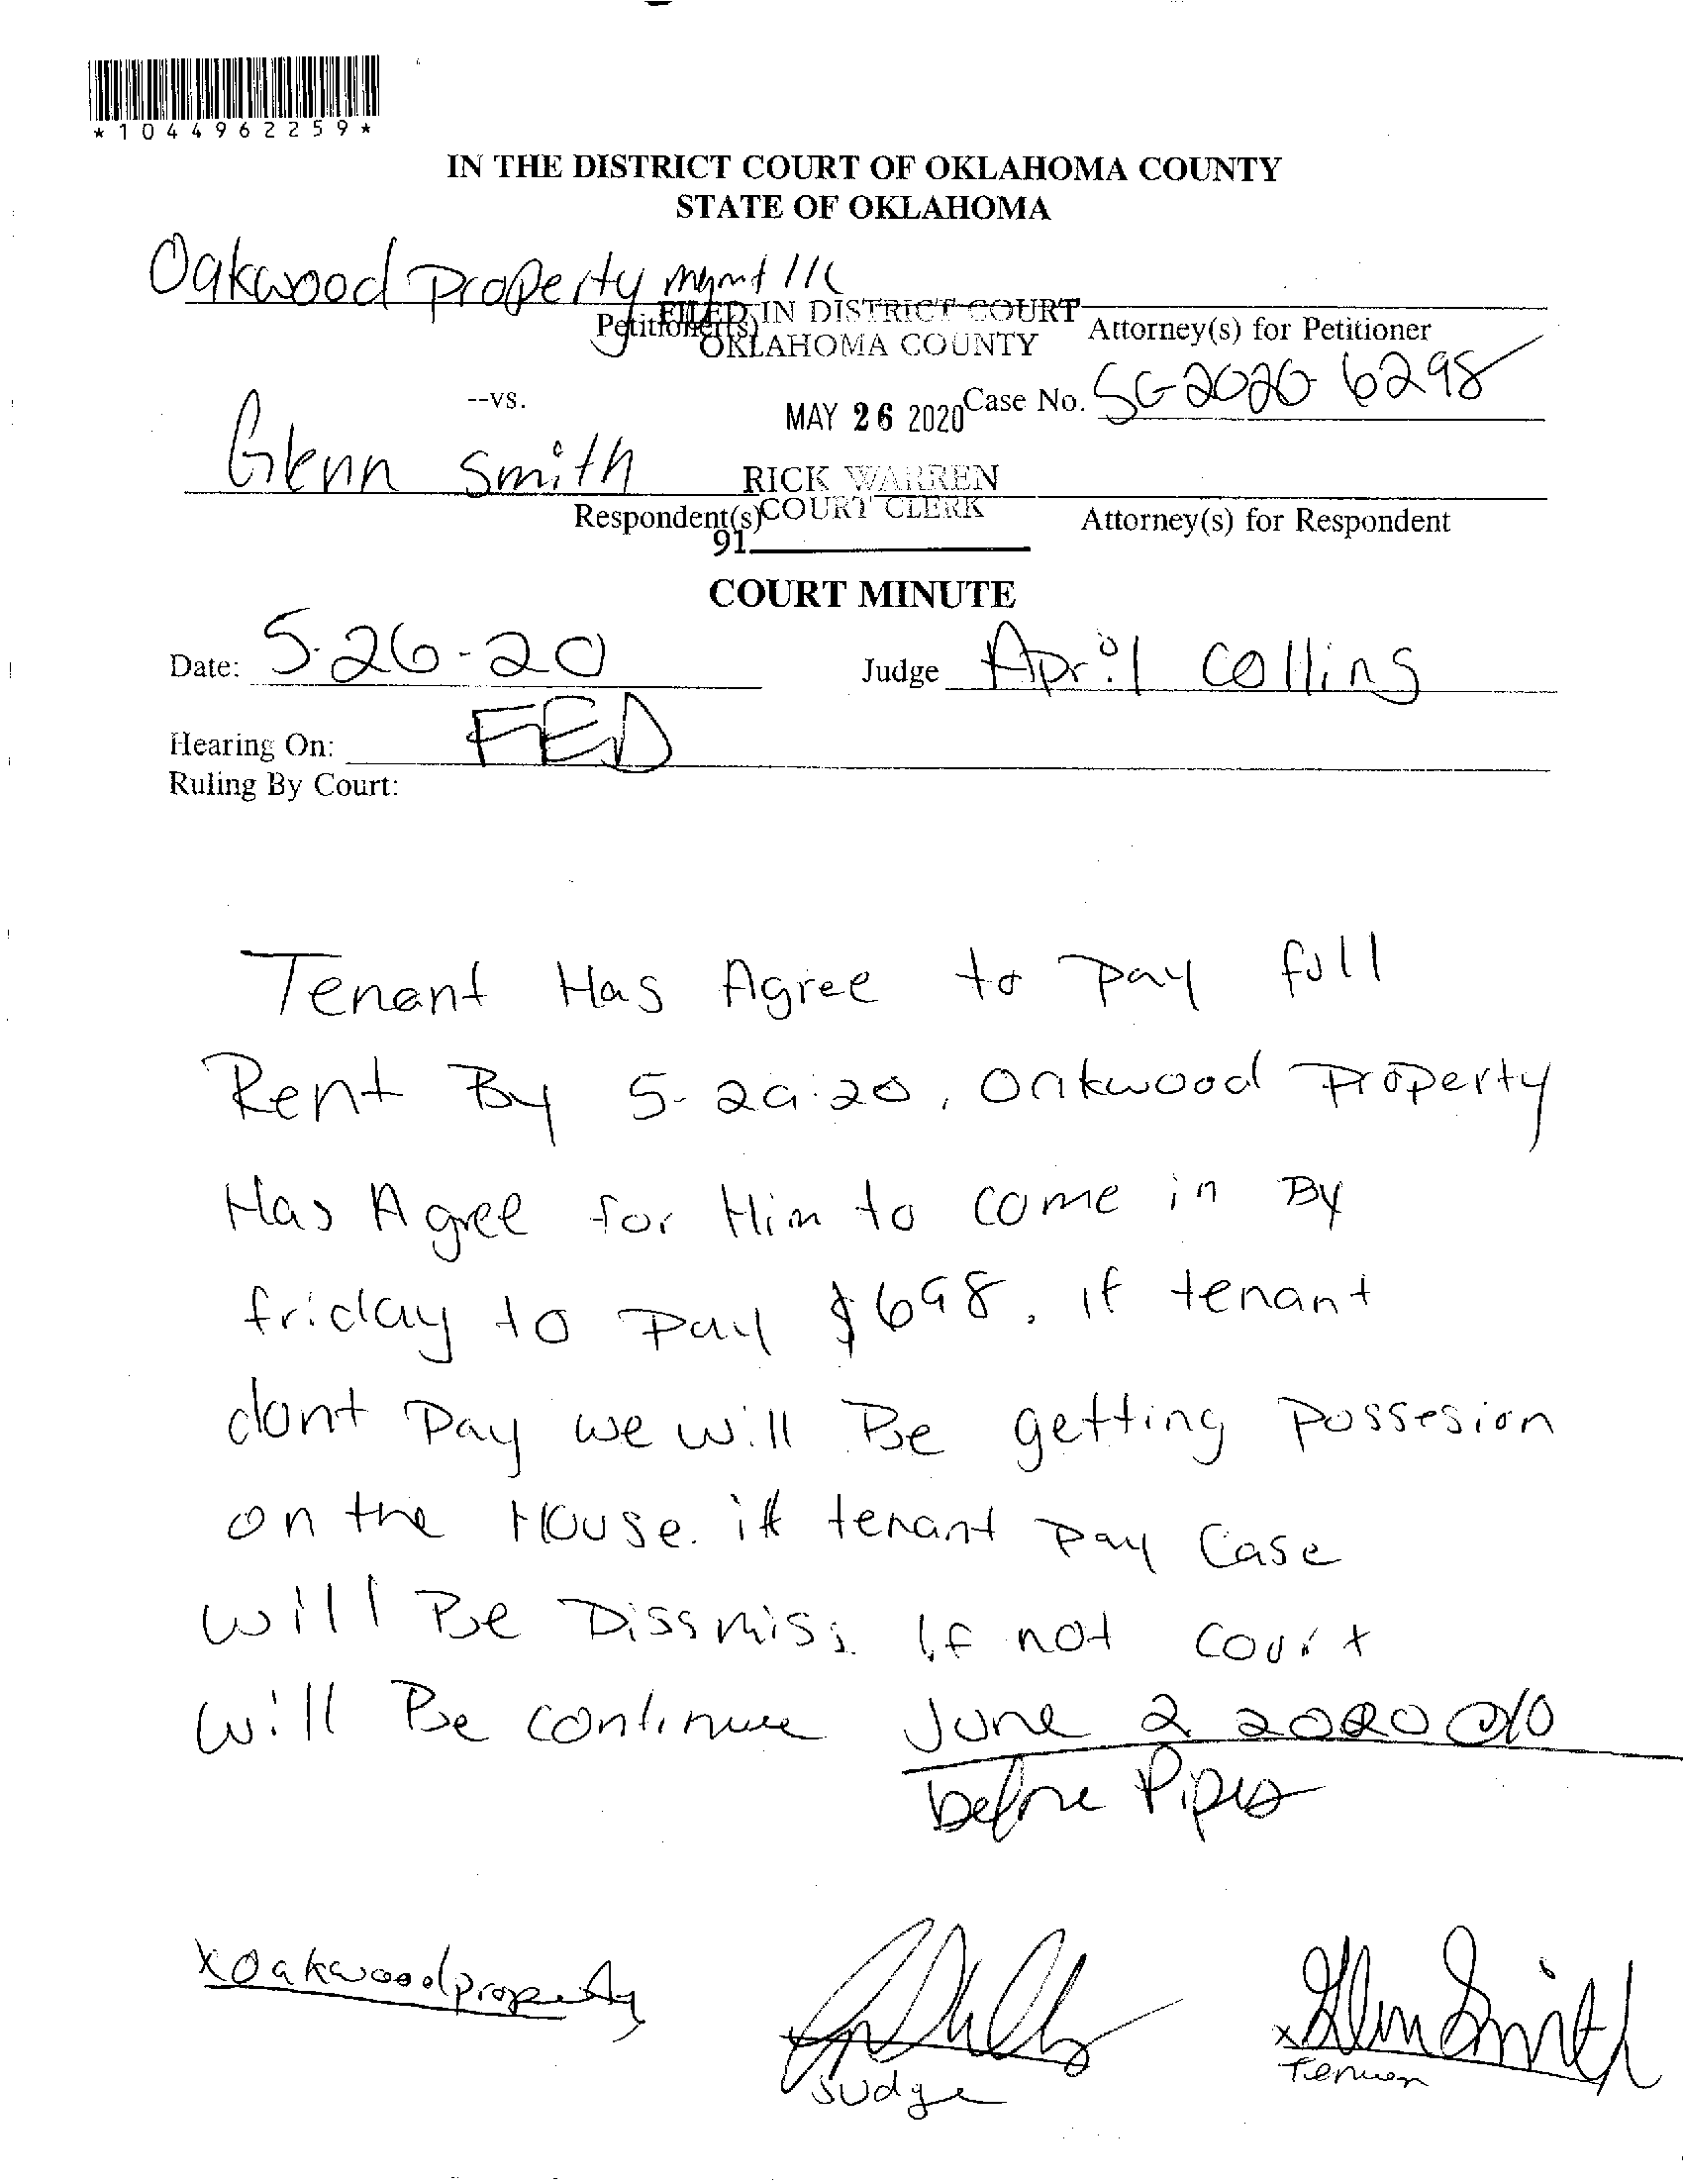 *1044962259*
IN THE DISTRICT COURT OF OKLAHOMA COUNTY
STATE OF OKLAHOMA
Oakwood Property mgmt llc
FILED IN DISTRICT COURT
Petitioner(s)
OKLAHOMA COUNTY
Attorney(s) for Petitioner
--vs.
MAY 26 2020
Case No. SC-2020 6298
Glenn Smith
RICK WARREN
COURT CLERK
Respondent(s)
Attorney(s) for Respondent
91
COURT MINUTE
Date: 5-26-20
Judge April Collins
Hearing On: FED
Ruling By Court:
Tenant Has Agree to pay full
Rent By 5-29-20, Oakwood Property
Has Agree for Him to come in By
friday to Pay $698. if tenant
dont Pay we will Be getting possesion
on the House. if tenant Pay Case
will Be Dissmiss. If not court
will Be continue June 2 2020 @10
before Pipes
x Oakwood property
Judge
x Glenn Smith